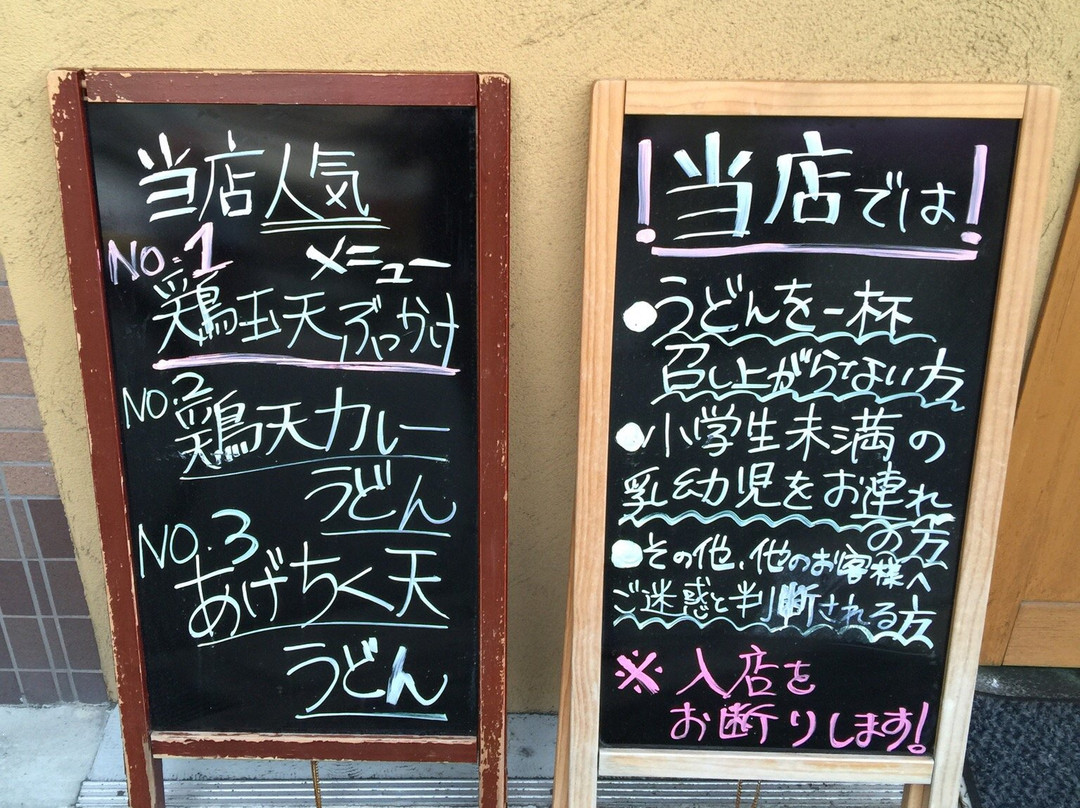 当店人気
メニュー
NO.1
鶏玉天ぶっかけ
NO.2
鶏天カレー
うどん
NO.3
あげちく天
うどん
!当店では!
●うどんを一杯
召し上がらない方
●小学生未満の
乳幼児をお連れ
の方
●その他、他のお客様へ
ご迷惑と判断される方
※入店を
お断りします!